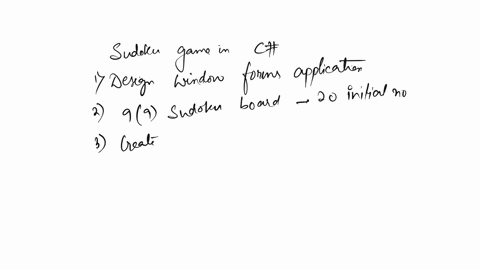 Sudoku game in C#
1) Design Window forms application
2) 9(9) Sudoku board - 20 initial no
3) Create